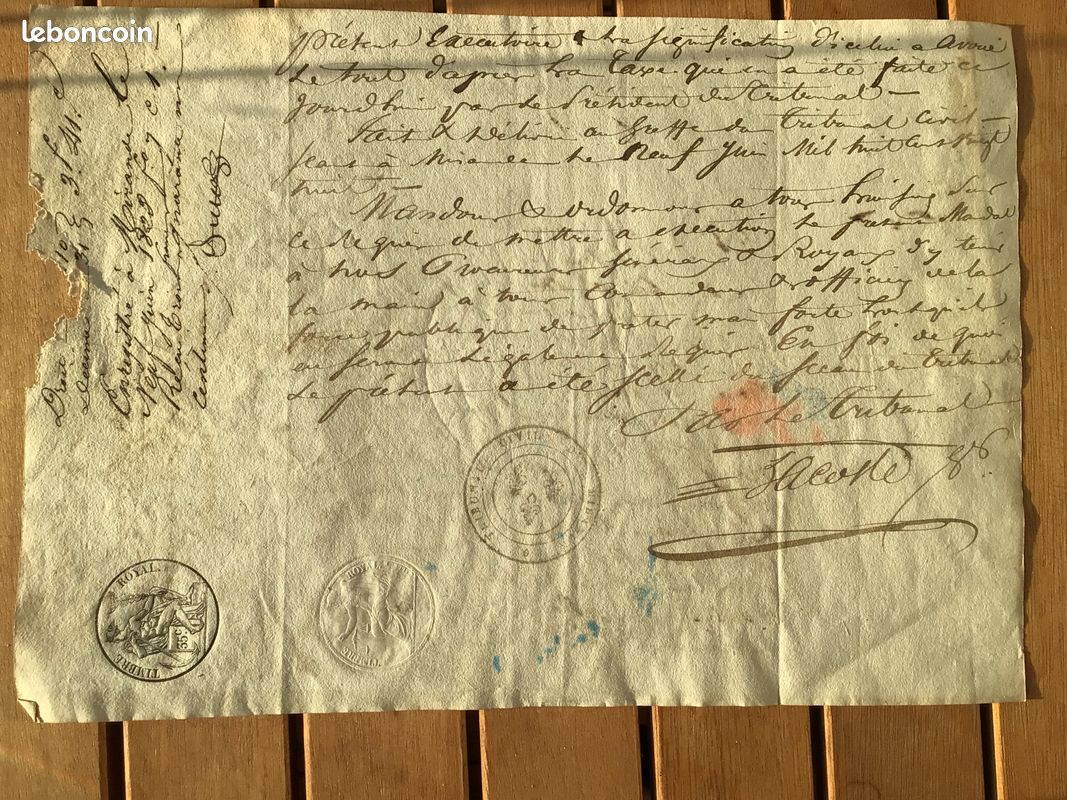 leboncoin
présent Exécutoire & la signification d'icelui a avoué
le tout d'après la Taxe qui en a été faite ce
jourd'hui par le Président du Tribunal —
Fait & délivré au Greffe du Tribunal Civil
séant à Mirande le Neuf Juin Mil huit cent vingt
huit
Mandons & ordonnons a tous huissiers sur
ce Requis de mettre a exécution le présent Mandat
à nos Procureurs Généraux & Royaux d'y tenir
la main à tous Commandans & officiers de la
force publique de prêter main forte lorsqu'ils
en seront légalement Requis En foi de quoi
le présent a été scellé du sceau du Tribunal
Par le Tribunal
Lacoste
Enregistré à Mirande le
centimes
TRIBUNAL CIVIL
TIMBRE ROYAL.
35 c
TIMBRE ROYAL.